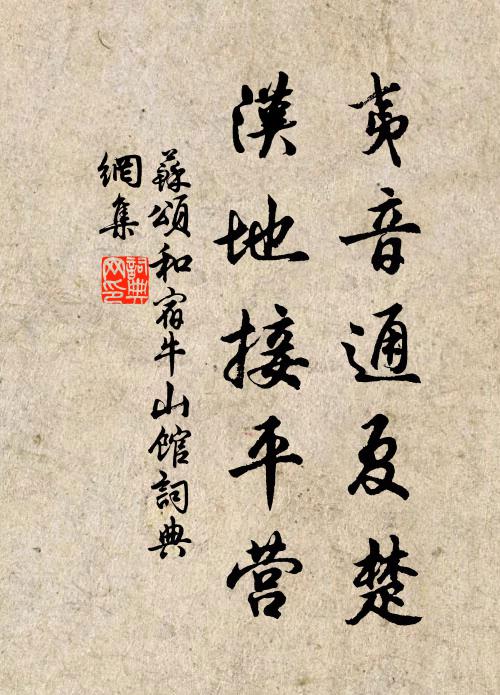 夷音通夏楚
漢地接平营
蘇頌和宿牛山館詞典
網集
詞典網印